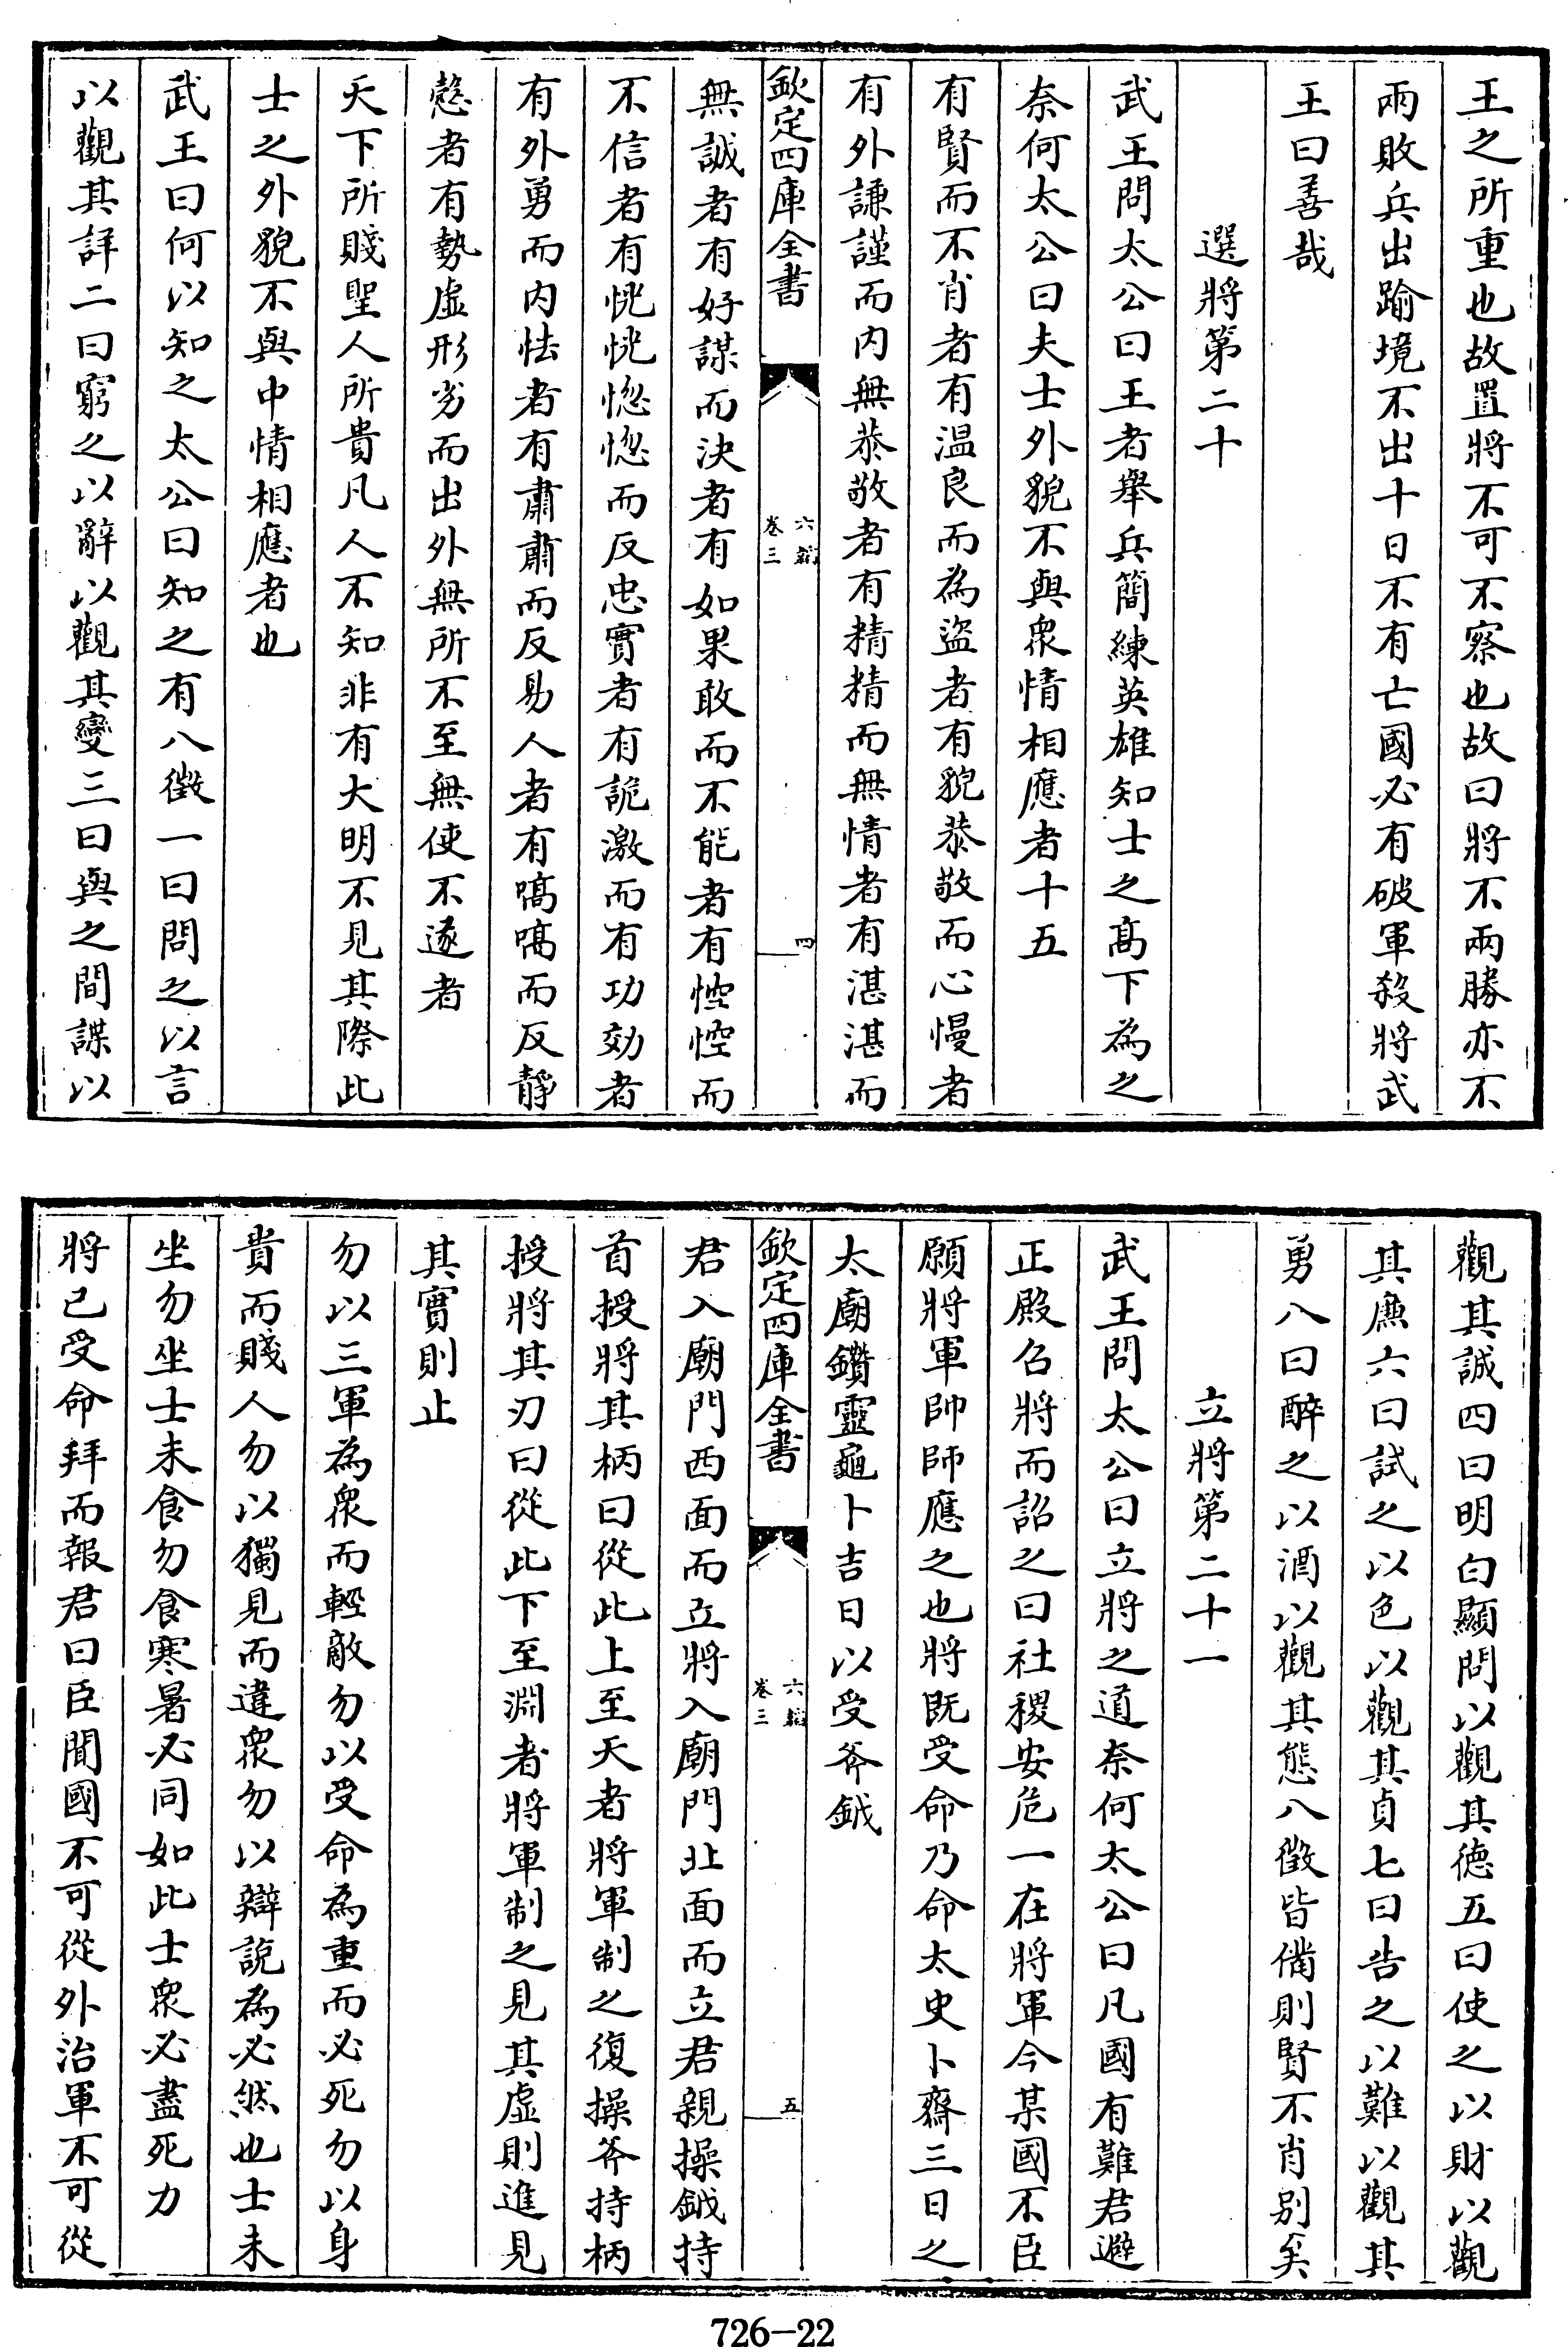 王之所重也故置將不可不察也故曰將不兩勝亦不
兩敗兵出踰境不出十日不有亡國必有破軍殺將武
王曰善哉
選將第二十
武王問太公曰王者舉兵簡練英雄知士之髙下為之
奈何太公曰夫士外貌不與衆情相應者十五
有賢而不肖者有温良而為盜者有貌恭敬而心慢者
有外謙謹而内無恭敬者有精精而無情者有湛湛而
欽定四庫全書
六韜
卷三
四
無誠者有好謀而決者有如果敢而不能者有悾悾而
不信者有恍恍惚惚而反忠實者有詭激而有功効者
有外勇而内怯者有肅肅而反易人者有嗃嗃而反靜
慤者有勢虛形劣而出外無所不至無使不遂者
天下所賤聖人所貴凡人不知非有大明不見其際此
士之外貌不與中情相應者也
武王曰何以知之太公曰知之有八徵一曰問之以言
以觀其詳二曰窮之以辭以觀其變三曰與之間諜以
觀其誠四曰明白顯問以觀其徳五曰使之以財以觀
其廉六曰試之以色以觀其貞七曰告之以難以觀其
勇八曰醉之以酒以觀其態八徵皆備則賢不肖别矣
立將第二十一
武王問太公曰立將之道奈何太公曰凡國有難君避
正殿召將而詔之曰社稷安危一在將軍今某國不臣
願將軍帥師應之也將既受命乃命太史卜齋三日之
太廟鑽靈龜卜吉日以受斧鉞
欽定四庫全書
六韜
卷三
五
君入廟門西面而立將入廟門北面而立君親操鉞持
首授將其柄曰從此上至天者將軍制之復操斧持柄
授將其刃曰從此下至淵者將軍制之見其虛則進見
其實則止
勿以三軍為衆而輕敵勿以受命為重而必死勿以身
貴而賤人勿以獨見而違衆勿以辯説為必然也士未
坐勿坐士未食勿食寒暑必同如此士衆必盡死力
將已受命拜而報君曰臣聞國不可從外治軍不可從
726-22